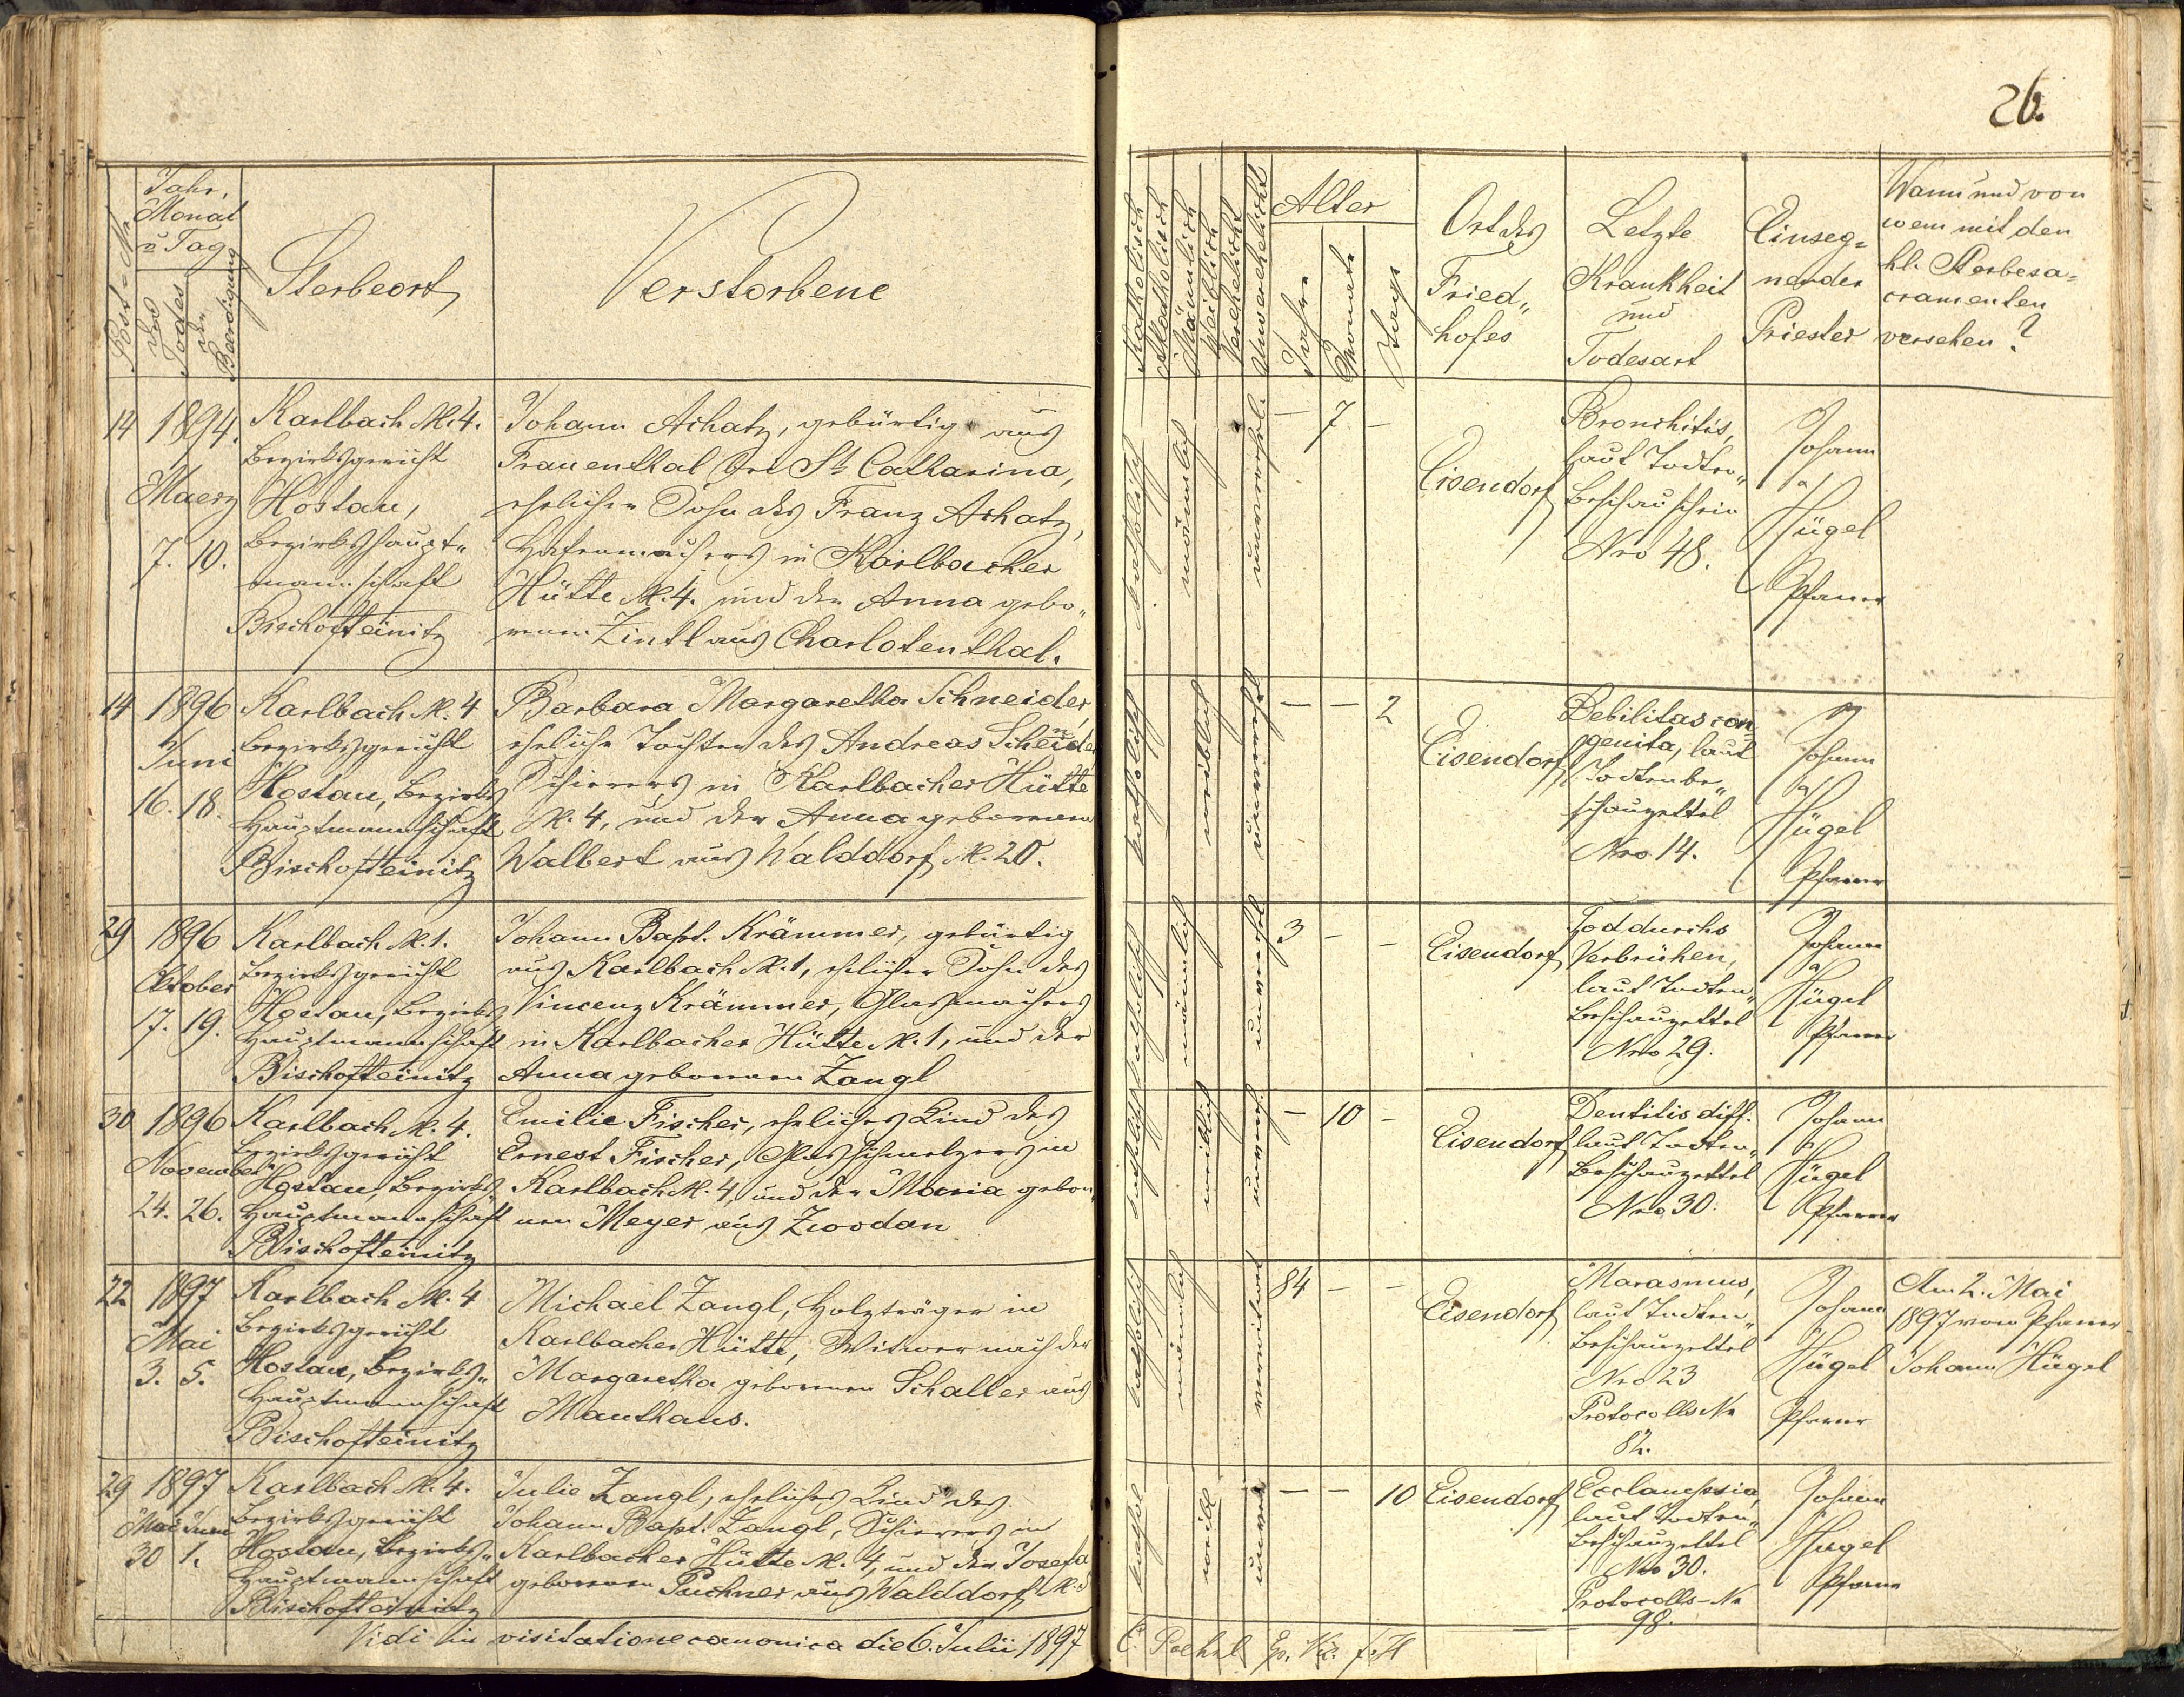 26.
Post-Nr.
Jahr,
Monat
u Tag
des
Todes
der
Beerdigung
Sterbeort
Verstorbene
Katholisch
Akatholisch
Männlich
Weiblich
Verehelicht
Unverehelicht
Alter
Jahre
Monate
Tage
Ort des
Fried„
hofes
Letzte
Krankheit
und
Todesart
Einseg=
nender
Priester
Wann und von
wem mit den
hl. Sterbesa=
cramenten
versehen?
14
1894.
Maerz
7. 10.
Karlbach N. 4.
Bezirksgericht
Hostau,
Bezirkshaupt„
mannschaft
Bischofteinitz
Johann Achatz, gebürtig aus
Frauenthal bei St Catharina,
ehelicher Sohn des Franz Achatz,
Hafenmachers in Karlbacher
Hütte N. 4. und der Anna gebo„
renen Zintl aus Charlotenthal.
katholisch
männlich
unverehel.
— 7 —
Eisendorf
Bronchitis,
laut Todten„
beschauschein
Nro 48.
Johann
Hügel
Pfarrer
14
1896
Juni
16. 18.
Karlbach N. 4
Bezirksgericht
Hostau, Bezirks
Hauptmannschaft
Bischofteinitz
Barbara Margaretha Schneider,
eheliche Tochter des Andreas Scheider
Schierers in Karlbacher Hütte
N. 4, und der Anna geborenen
Walbert aus Walddorf N. 20.
katholisch
weiblich
unvereh
— — 2
Eisendorf
Debilitas con
genita, laut
Todtenbe„
schauzettel
Nro 14.
Johann
Hügel
Pfarrer
29
1896
Oktober
17. 19.
Karlbach N. 1.
Bezirksgericht
Hostau, Bezirks
Hauptmannschaft
Bischofteinitz
Johann Bapt. Krämmer, gebürtig
aus Karlbach N. 1, ehelicher Sohn des
Vincenz Krämmer, Glasmachers
in Karlbacher Hütte N. 1, und der
Anna geborenen Zangl
katholisch
männlich
unverehl
3 — —
Eisendorf
Tod durchs
Verbrühen,
laut Todten„
beschauzettel
Nro 29.
Johann
Hügel
Pfarrer
30
1896
November
24. 26.
Karlbach N. 4.
Bezirksgericht
Hostau, Bezirks
Hauptmannschaft
Bischofteinitz
Emilie Fischer, eheliches Kind des
Ernest Fischer, Glasschmelzers in
Karlbach N. 4, und der Maria gebor„
nen Meyer aus Zwodau
katholisch
weiblich
unvereh.
— 10 —
Eisendorf
Dentitis diff.
laut Todten„
beschauzettel
Nro 30.
Johann
Hügel
Pfarrer
22
1897
Mai
3. 5.
Karlbach N. 4
Bezirksgericht
Hostau, Bezirks„
Hauptmannschaft
Bischofteinitz
Michael Zangl, Holzträger in
Karlbacher Hütte, Witwer nach der
Margaretha geborenen Schaller aus
Mauthaus.
katholisch
männlich
verwitwet
84 — —
Eisendorf
Marasmus,
laut Todten„
beschauzettel
Nro 23
Protocolls Nr
82.
Johann
Hügel
Pfarrer
Am 2. Mai
1897 vom Pfarrer
Johann Hügel
29
1897
Mai Juni
30 1.
Karlbach N. 4.
Bezirksgericht
Hostau, Bezirks„
Hauptmannschaft
Bischofteinitz
Julie Zangl, eheliches Kind des
Johann Bapt. Zangl, Schierers in
Karlbacher Hütte N. 4, und der Josefa
geborenen Puchner aus Walddorf N.
kathol
weibl
unver
— — 10
Eisendorf
Ecclampsia,
laut Todten„
beschauzettel
Nro 30.
Protocolls-Nr
98.
Johann
Hügel
Pfarrer
Vidi in visitatione canonica die 6. Julii 1897